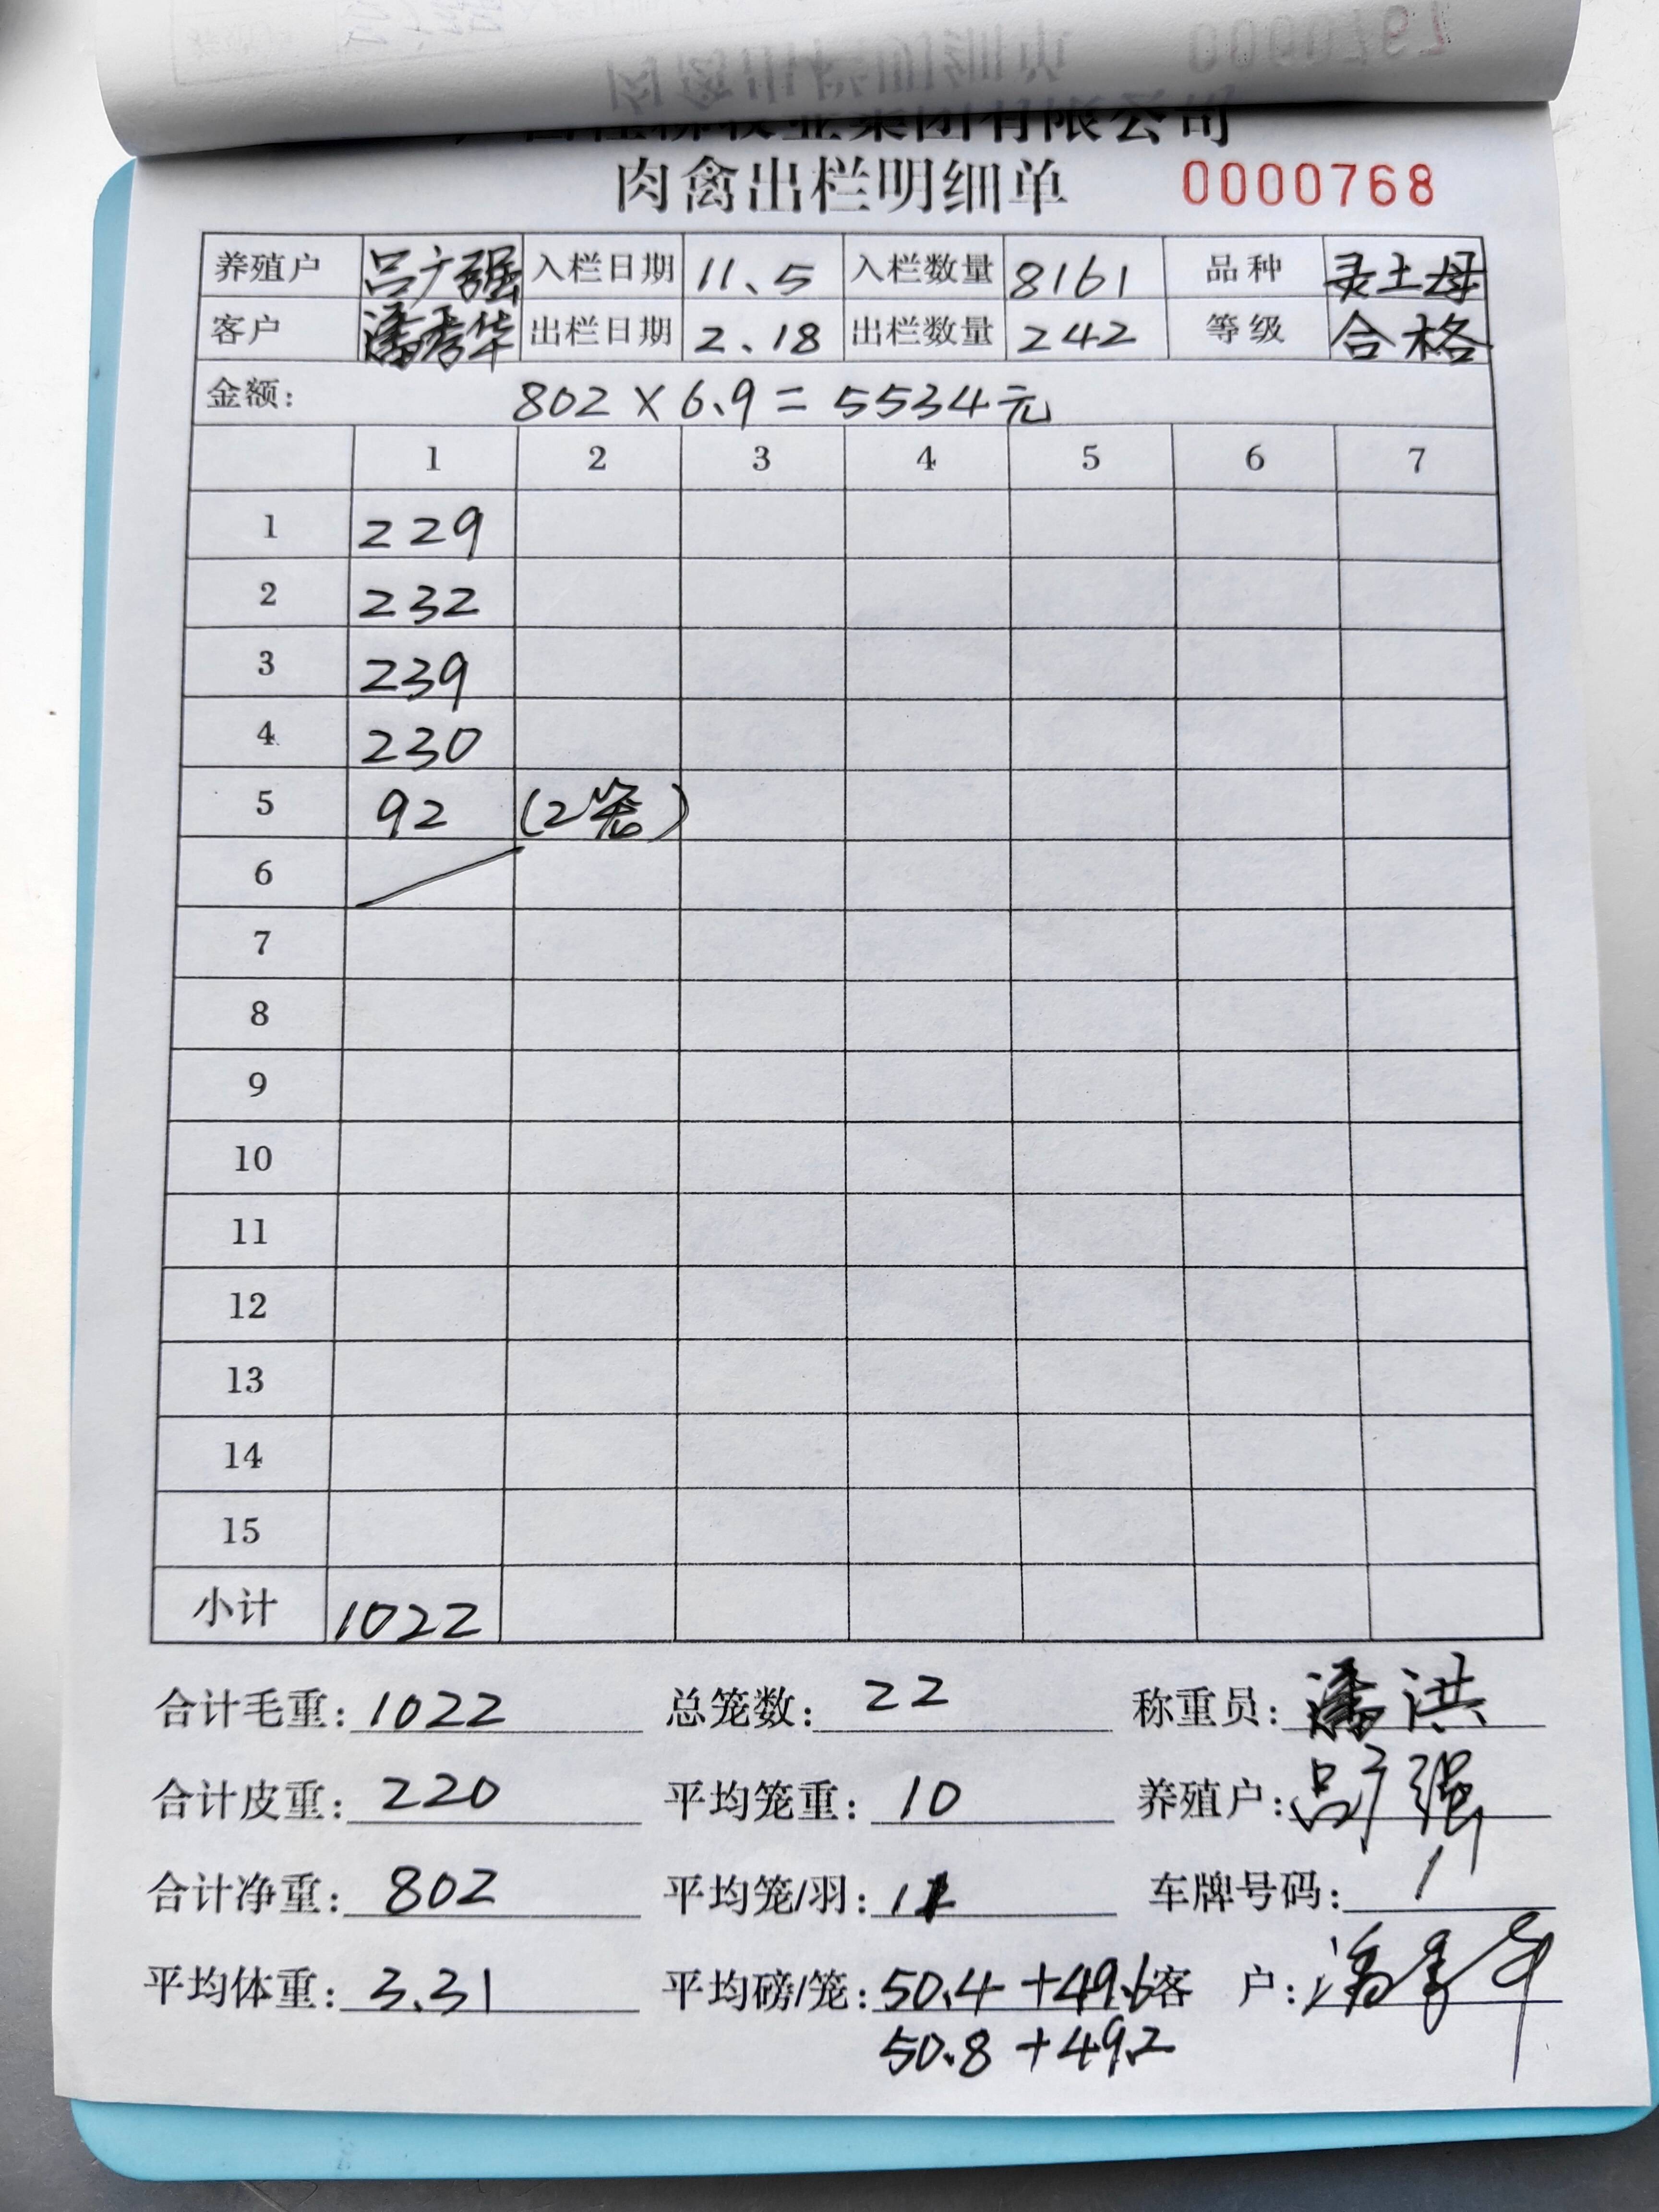 牧业集团有限公司
肉禽出栏明细单 0000768
养殖户 吕广强 入栏日期 11.5 入栏数量 8161 品种 土母
客户 潘秀华 出栏日期 2.18 出栏数量 242 等级 合格
金额: 802 × 6.9 = 5534元
1 2 3 4 5 6 7
1 229
2 232
3 239
4 230
5 92 (2笼)
6
7
8
9
10
11
12
13
14
15
小计 1022
合计毛重: 1022 总笼数: 22 称重员: 潘洪
合计皮重: 220 平均笼重: 10 养殖户: 吕广强
合计净重: 802 平均笼/羽: 车牌号码: /
平均体重: 3.31 平均磅/笼: 50.4 + 49.6 客 户: 潘秀华
50.8 + 49.2